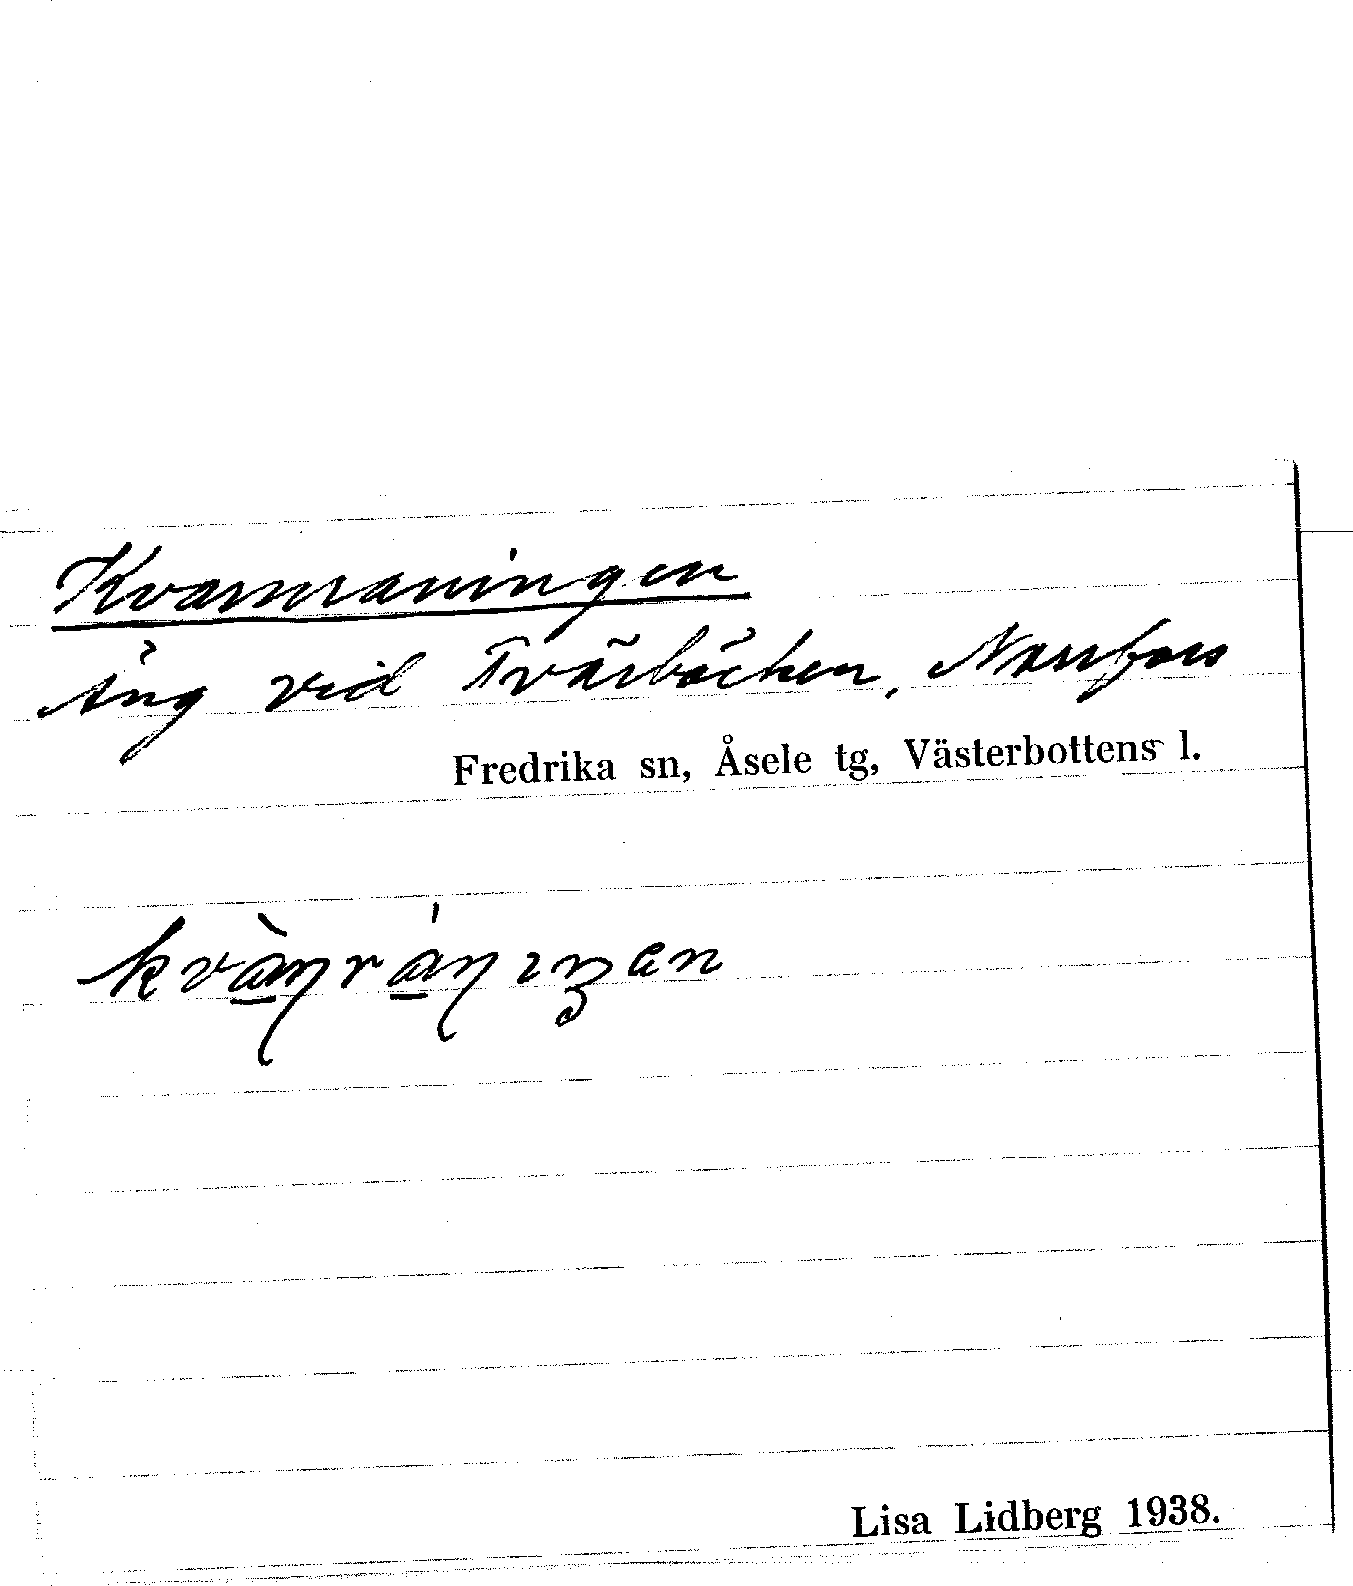 Kvarnraningen
Äng vid Tvärbäcken, Norrfors
Fredrika sn, Åsele tg, Västerbottens l.
kvàn̡rán̡ıŋen
Lisa Lidberg 1938.